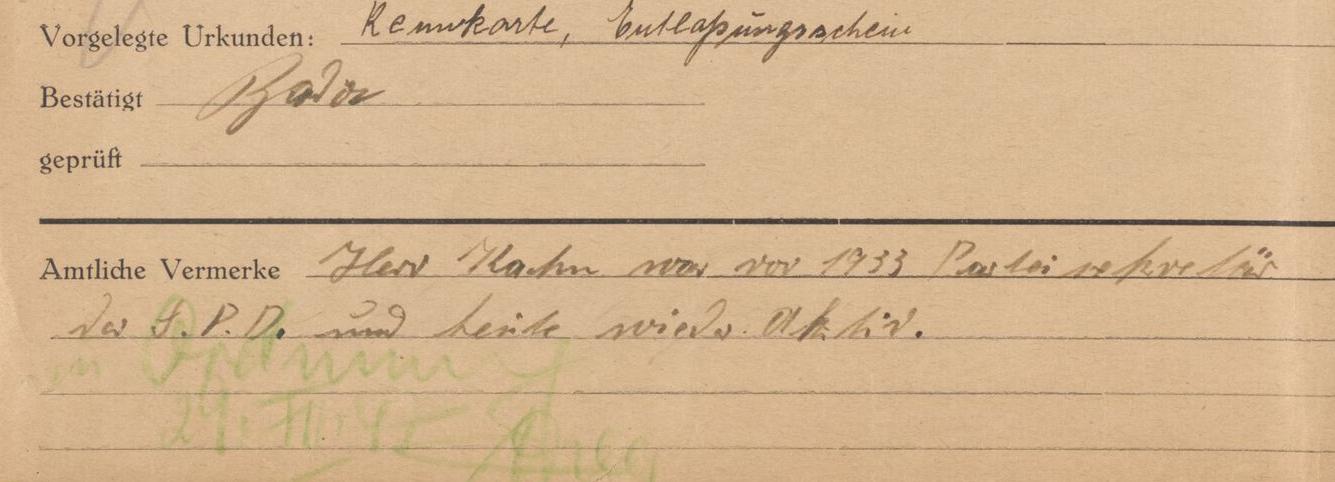 Vorgelegte Urkunden: Kennkarte, Entlaßungsschein
Bestätigt Bader
geprüft
Amtliche Vermerke Herr Kahn war vor 1933 Parteisekretär
der S.P.D. und heute wieder Aktiv.
in Ordnung
24. VII. 45